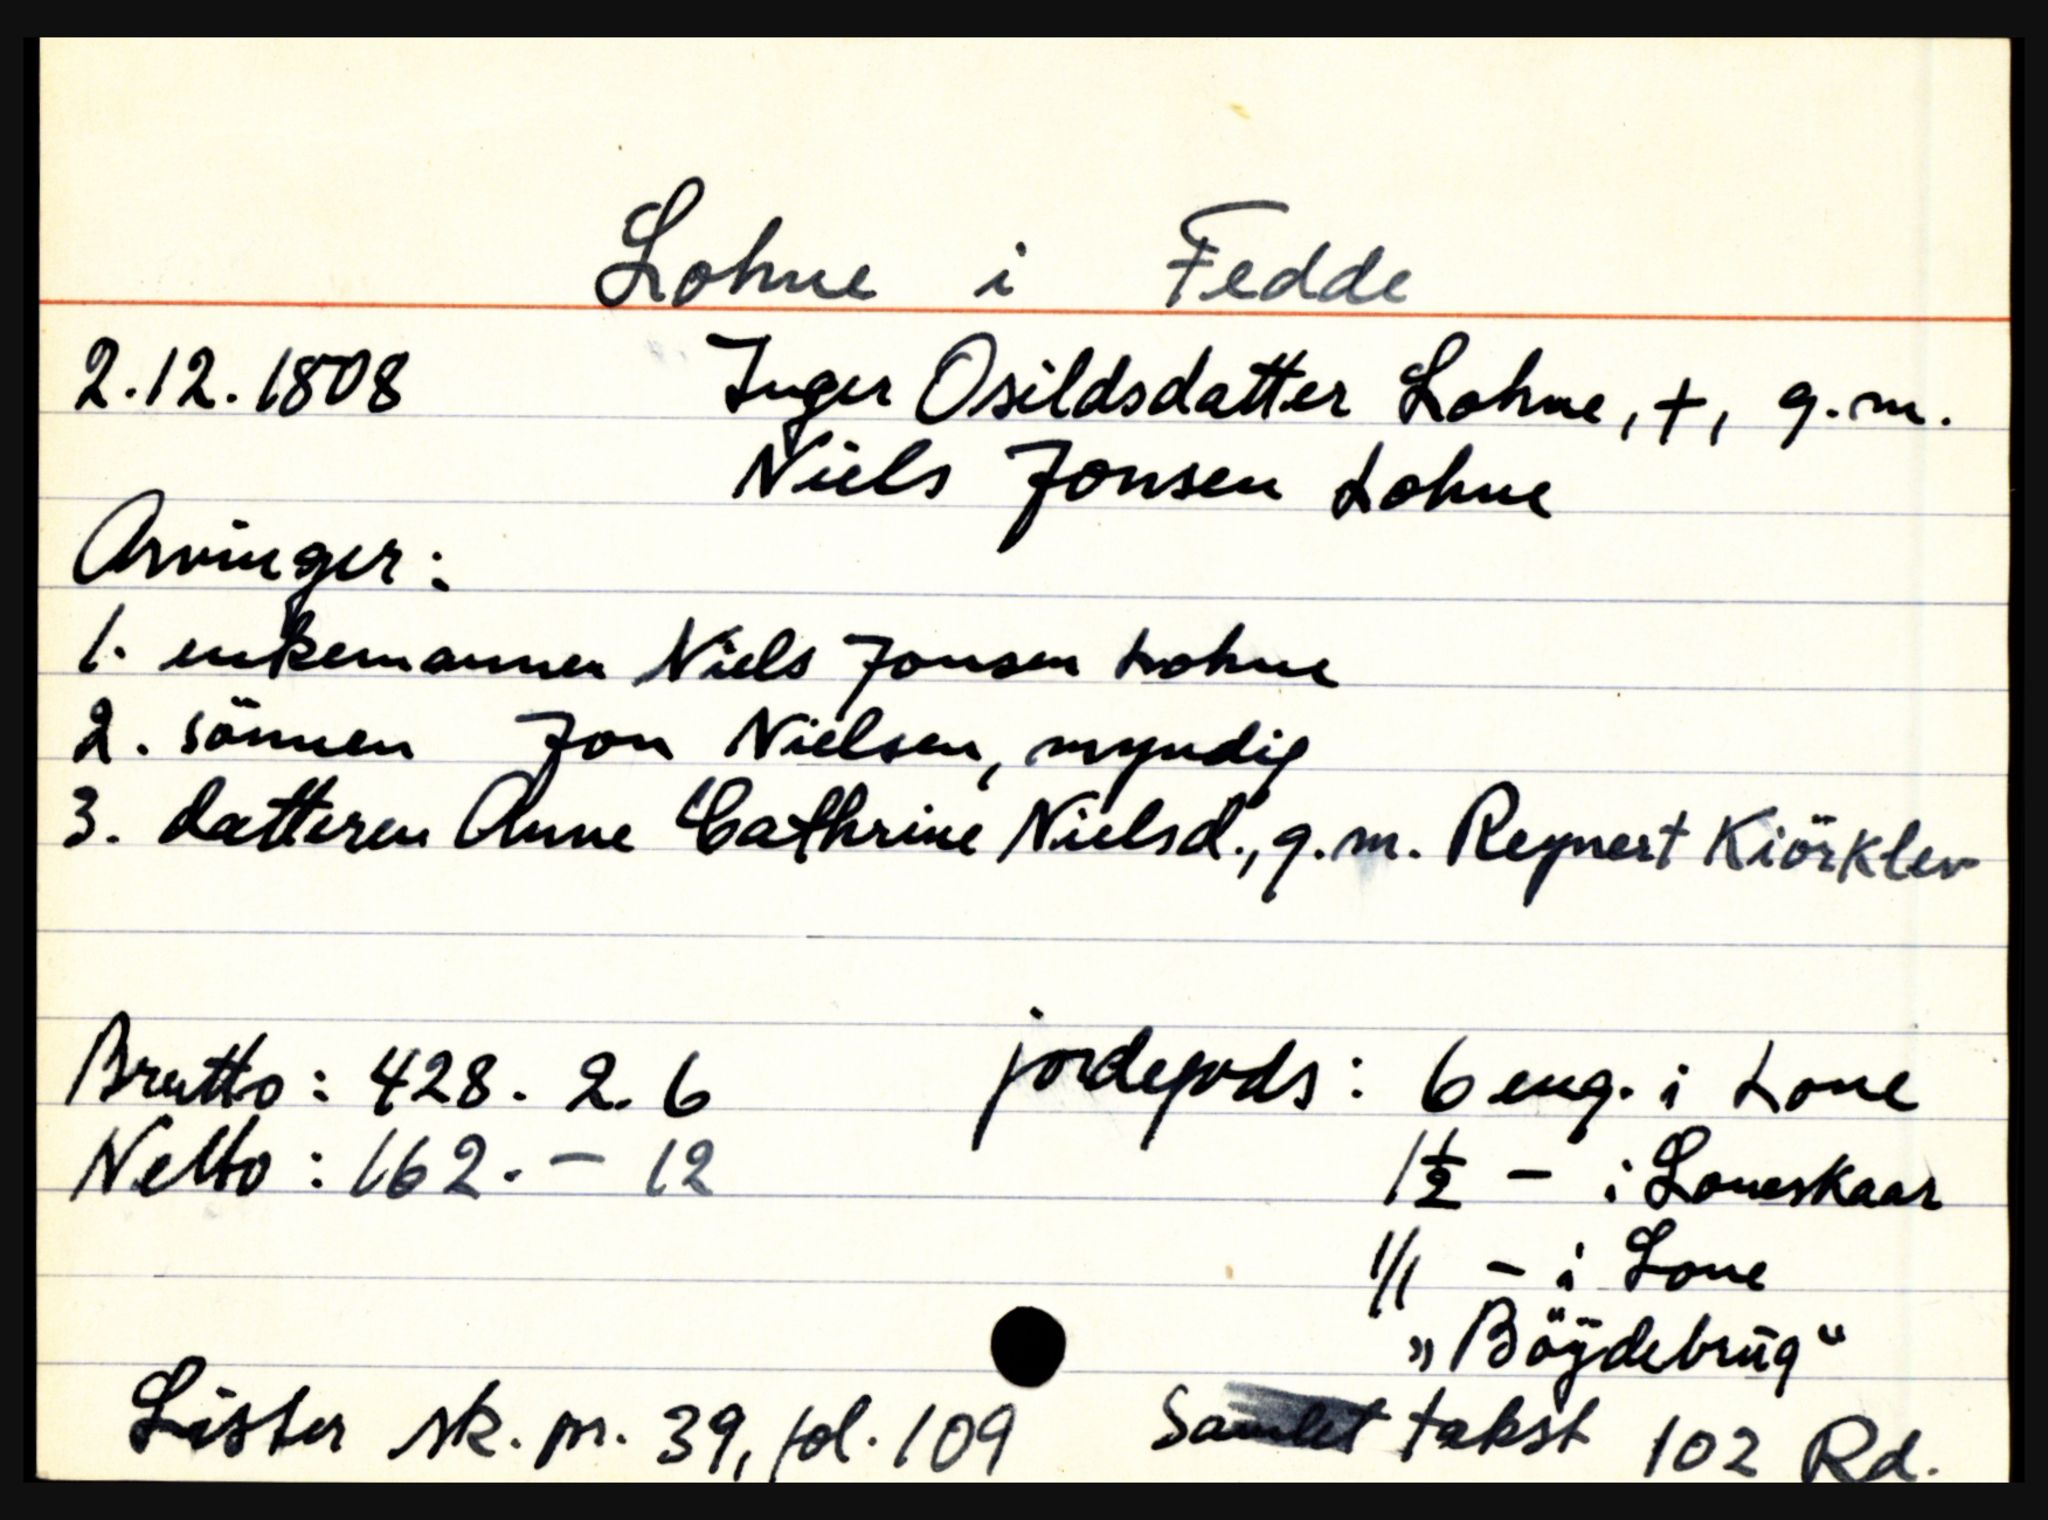 Lohne i Fedde
2.12.1808 Inger Osildsdatter Lohne, +, g.m.
Niels Jonsen Lohne
Arvinger:
1. enkemannen Niels Jonsen Lohne
2. sönnen Jon Nielsen, myndig
3. datteren Anne Cathrine Nielsd., g.m. Reynert Kiörklev
Brutto: 428. 2. 6 jordegods: 6 eng. i Lone
Netto: 162. - 12 1 1/2 - i Loneskaar
1/1 - i Lone
„Böÿdebrug“
Lister sk. pr. 39, fol. 109 Samlet takst 102 Rd.